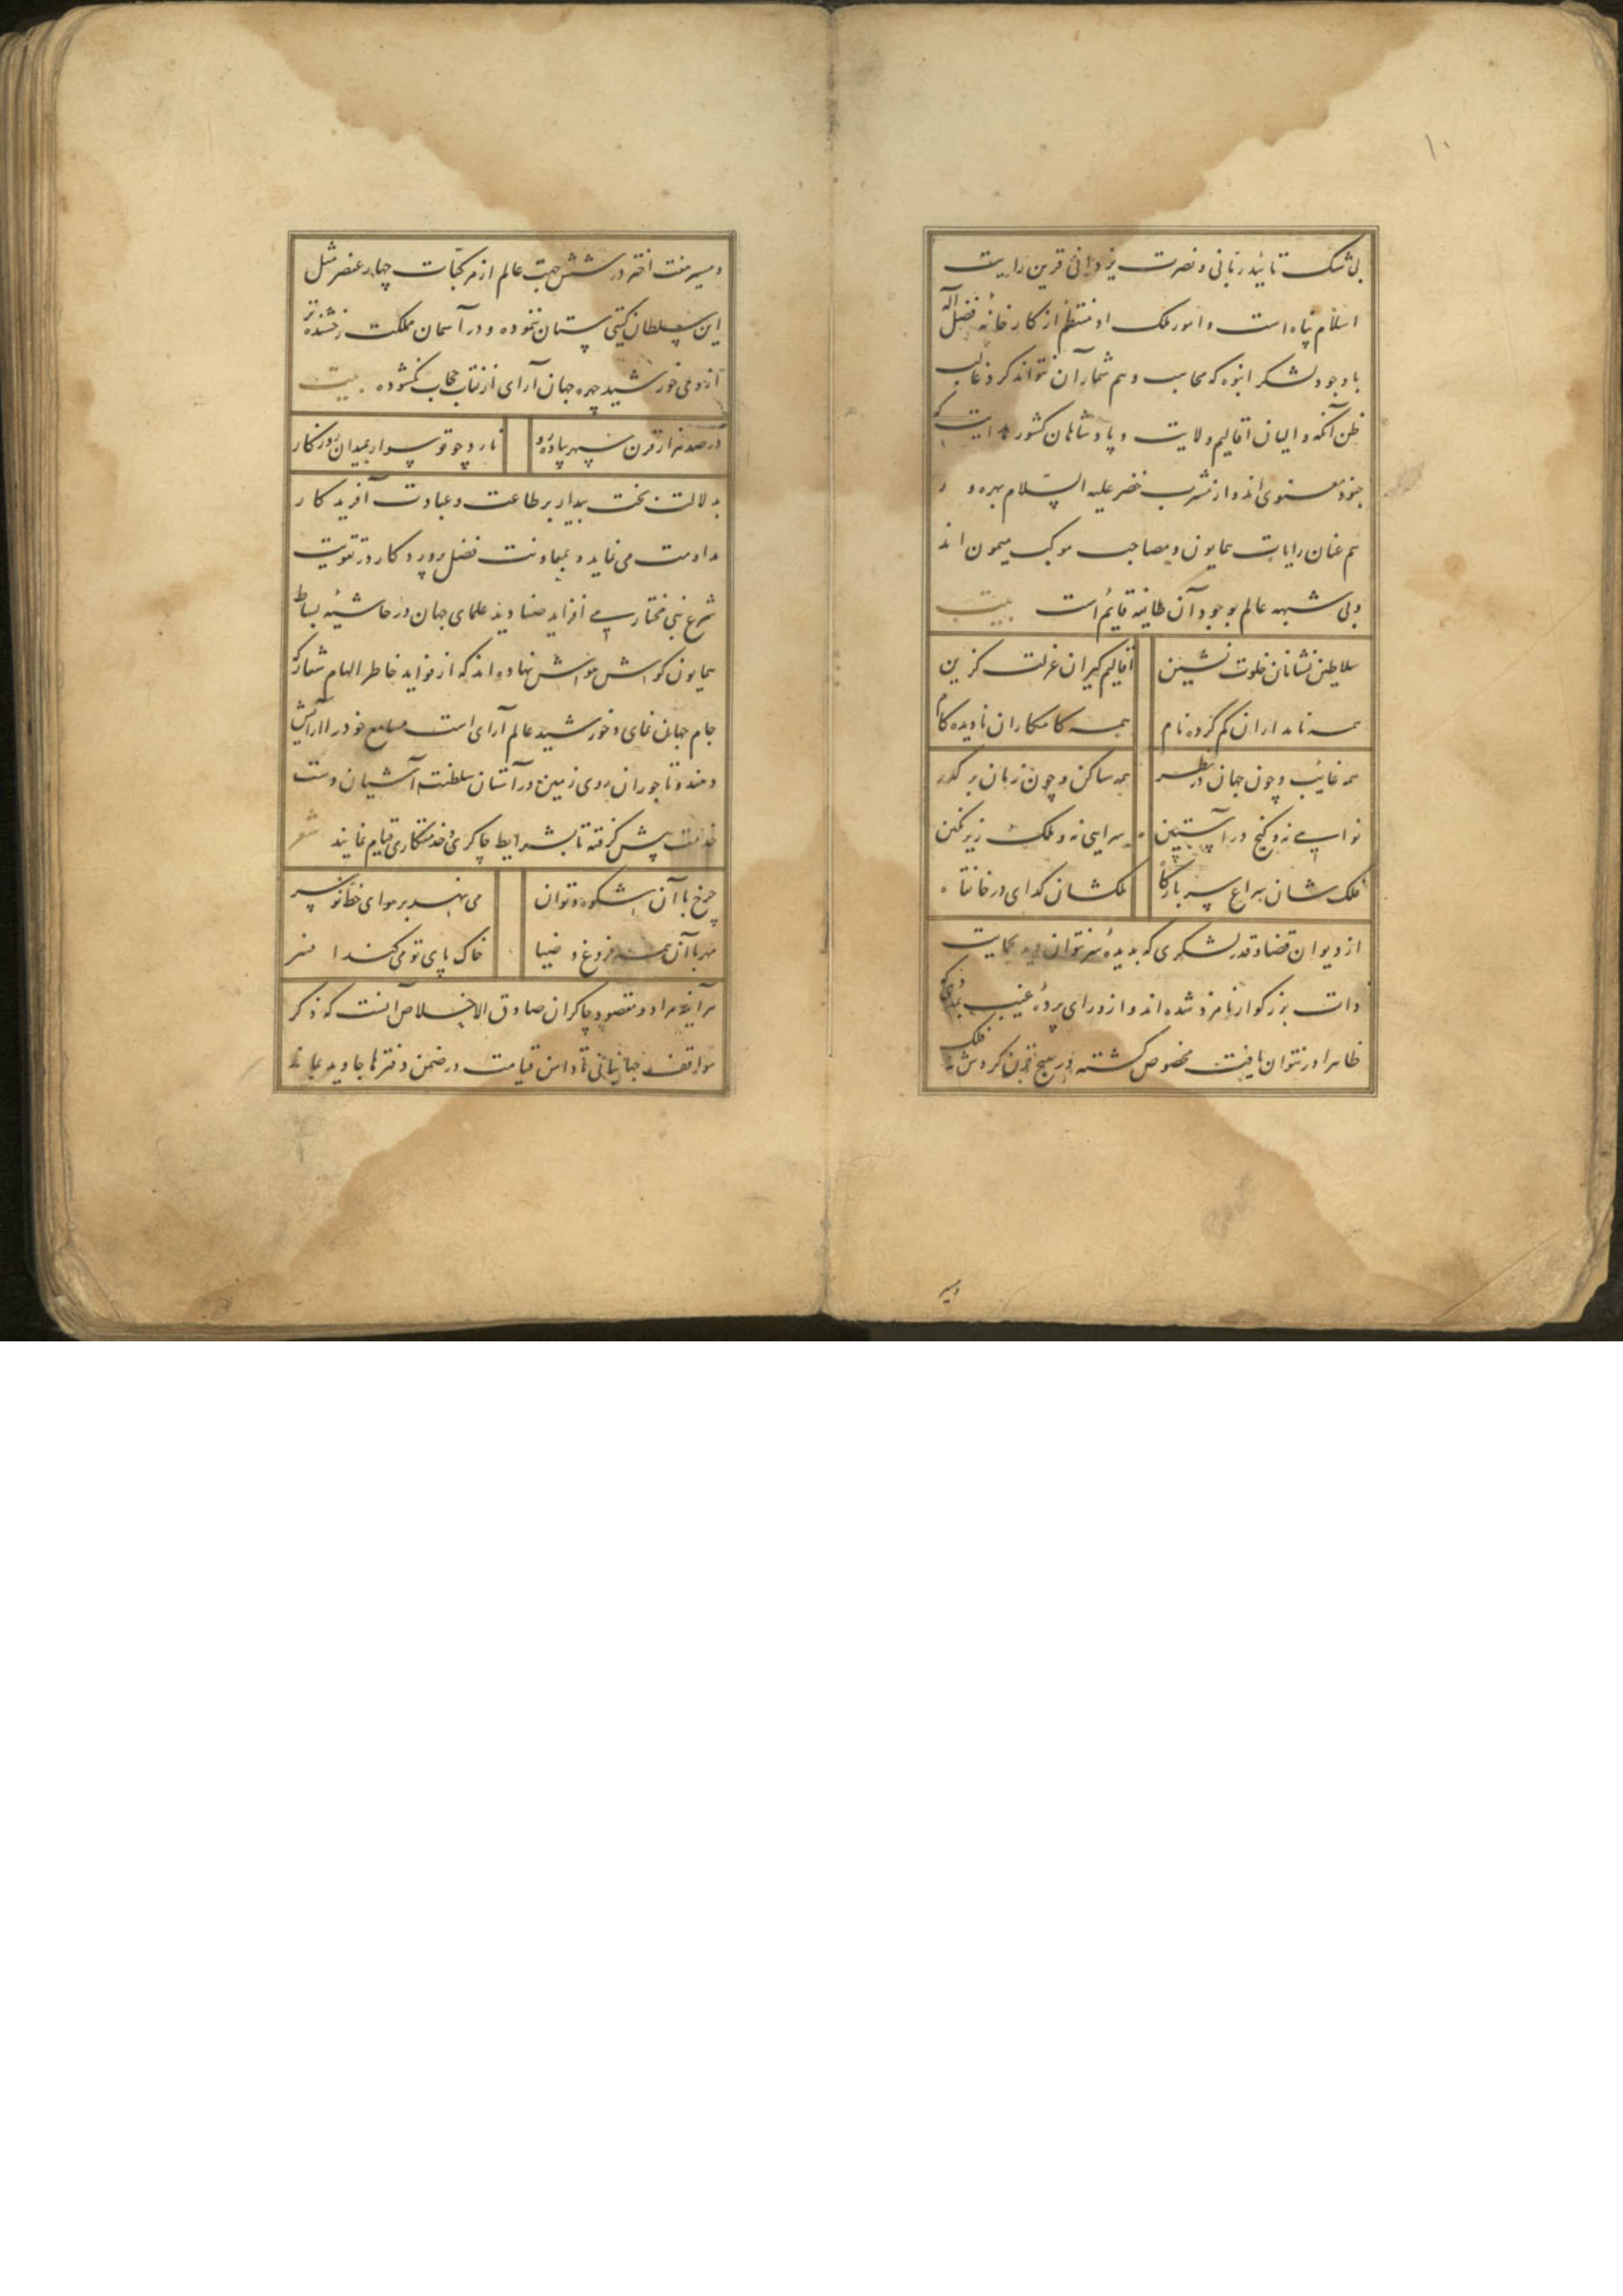 ۱۰
بی شک تائید ربانی و نصرت یزدانی قرین رایت
اسلام پناه است و امور ملک او منتظم از کارخانهٔ فضل آله
با وجود لشکر انبوه که محاسب وهم شمار آن نتواند کرد غالب
ظن آنکه والیان اقالیم ولایت و پادشاهان کشور هدایت که
جنود معنوی اند و از مشرب خضر علیه السلام بهره ور
هم عنان رایات همایون و مصاحب موکب میمون اند
و بی شبهه عالم بوجود آن طائفه قایم است بیت
سلاطین نشانان خلوت نشین اقالیم گیران عزلت گزین
همه نامداران گم کرده نام همه کامکاران نادیده کام
همه غایب و چون جهان در نظر همه ساکن و چون زبان بر گذر
نوایی نه و گنج در آستین سرایی نه و ملک زیر نگین
فلک شان چراغ سر بارگاه ملک شان گدای در خانقاه
از دیوان قضا و قدر لشکری که بدیدهٔ سر نتوان دید بحمایت
ذات بزرگوار نامزد شده اند و از ورای پردهٔ غیب بمددی که
ظاهرا در نتوان یافت مخصوص گشته در هیچ قرن گردش فلک
و سیر
و سیر هفت اختر در شش جهت عالم از مرکبات چهار عنصر مثل
این سلطان گیتی ستان ننموده و در آسمان مملکت رخشنده تر
ازو می خورشید چهره جهان آرای از نقاب حجاب نگشوده بیت
در صد هزار قرن سپهر پیاده رو نارد چو تو سوار بمیدان روزگار
بدلالت بخت بیدار بر طاعت و عبادت آفریدگار
مداومت می نماید و بمعاونت فضل پروردگار در تقویت
شرع نبی مختار می افزاید صنادید علمای جهان در حاشیهٔ بساط
همایون گوش هوش نهاده اند که از فواید خاطر الهام شعار که
جام جهان نمای و خورشید عالم آرای است مسامع خود را آرایش
دهند و تاجوران روی زمین در آستان سلطنت آشیان دست
خدمت پیش گرفته تا بشرایط چاکری و خدمتکاری قیام نمایند شعر
چرخ با آن شکوه و توان می نهد بر هوای خط تو سر
مهر با آن همه فروغ و ضیا خاک پای تو می کند افسر
هر آینه مراد و مقصود چاکران صادق الاخلاص آنست که ذکر
مواقف جهانبانی تا دامن قیامت در ضمن دفترها جاوید بماند